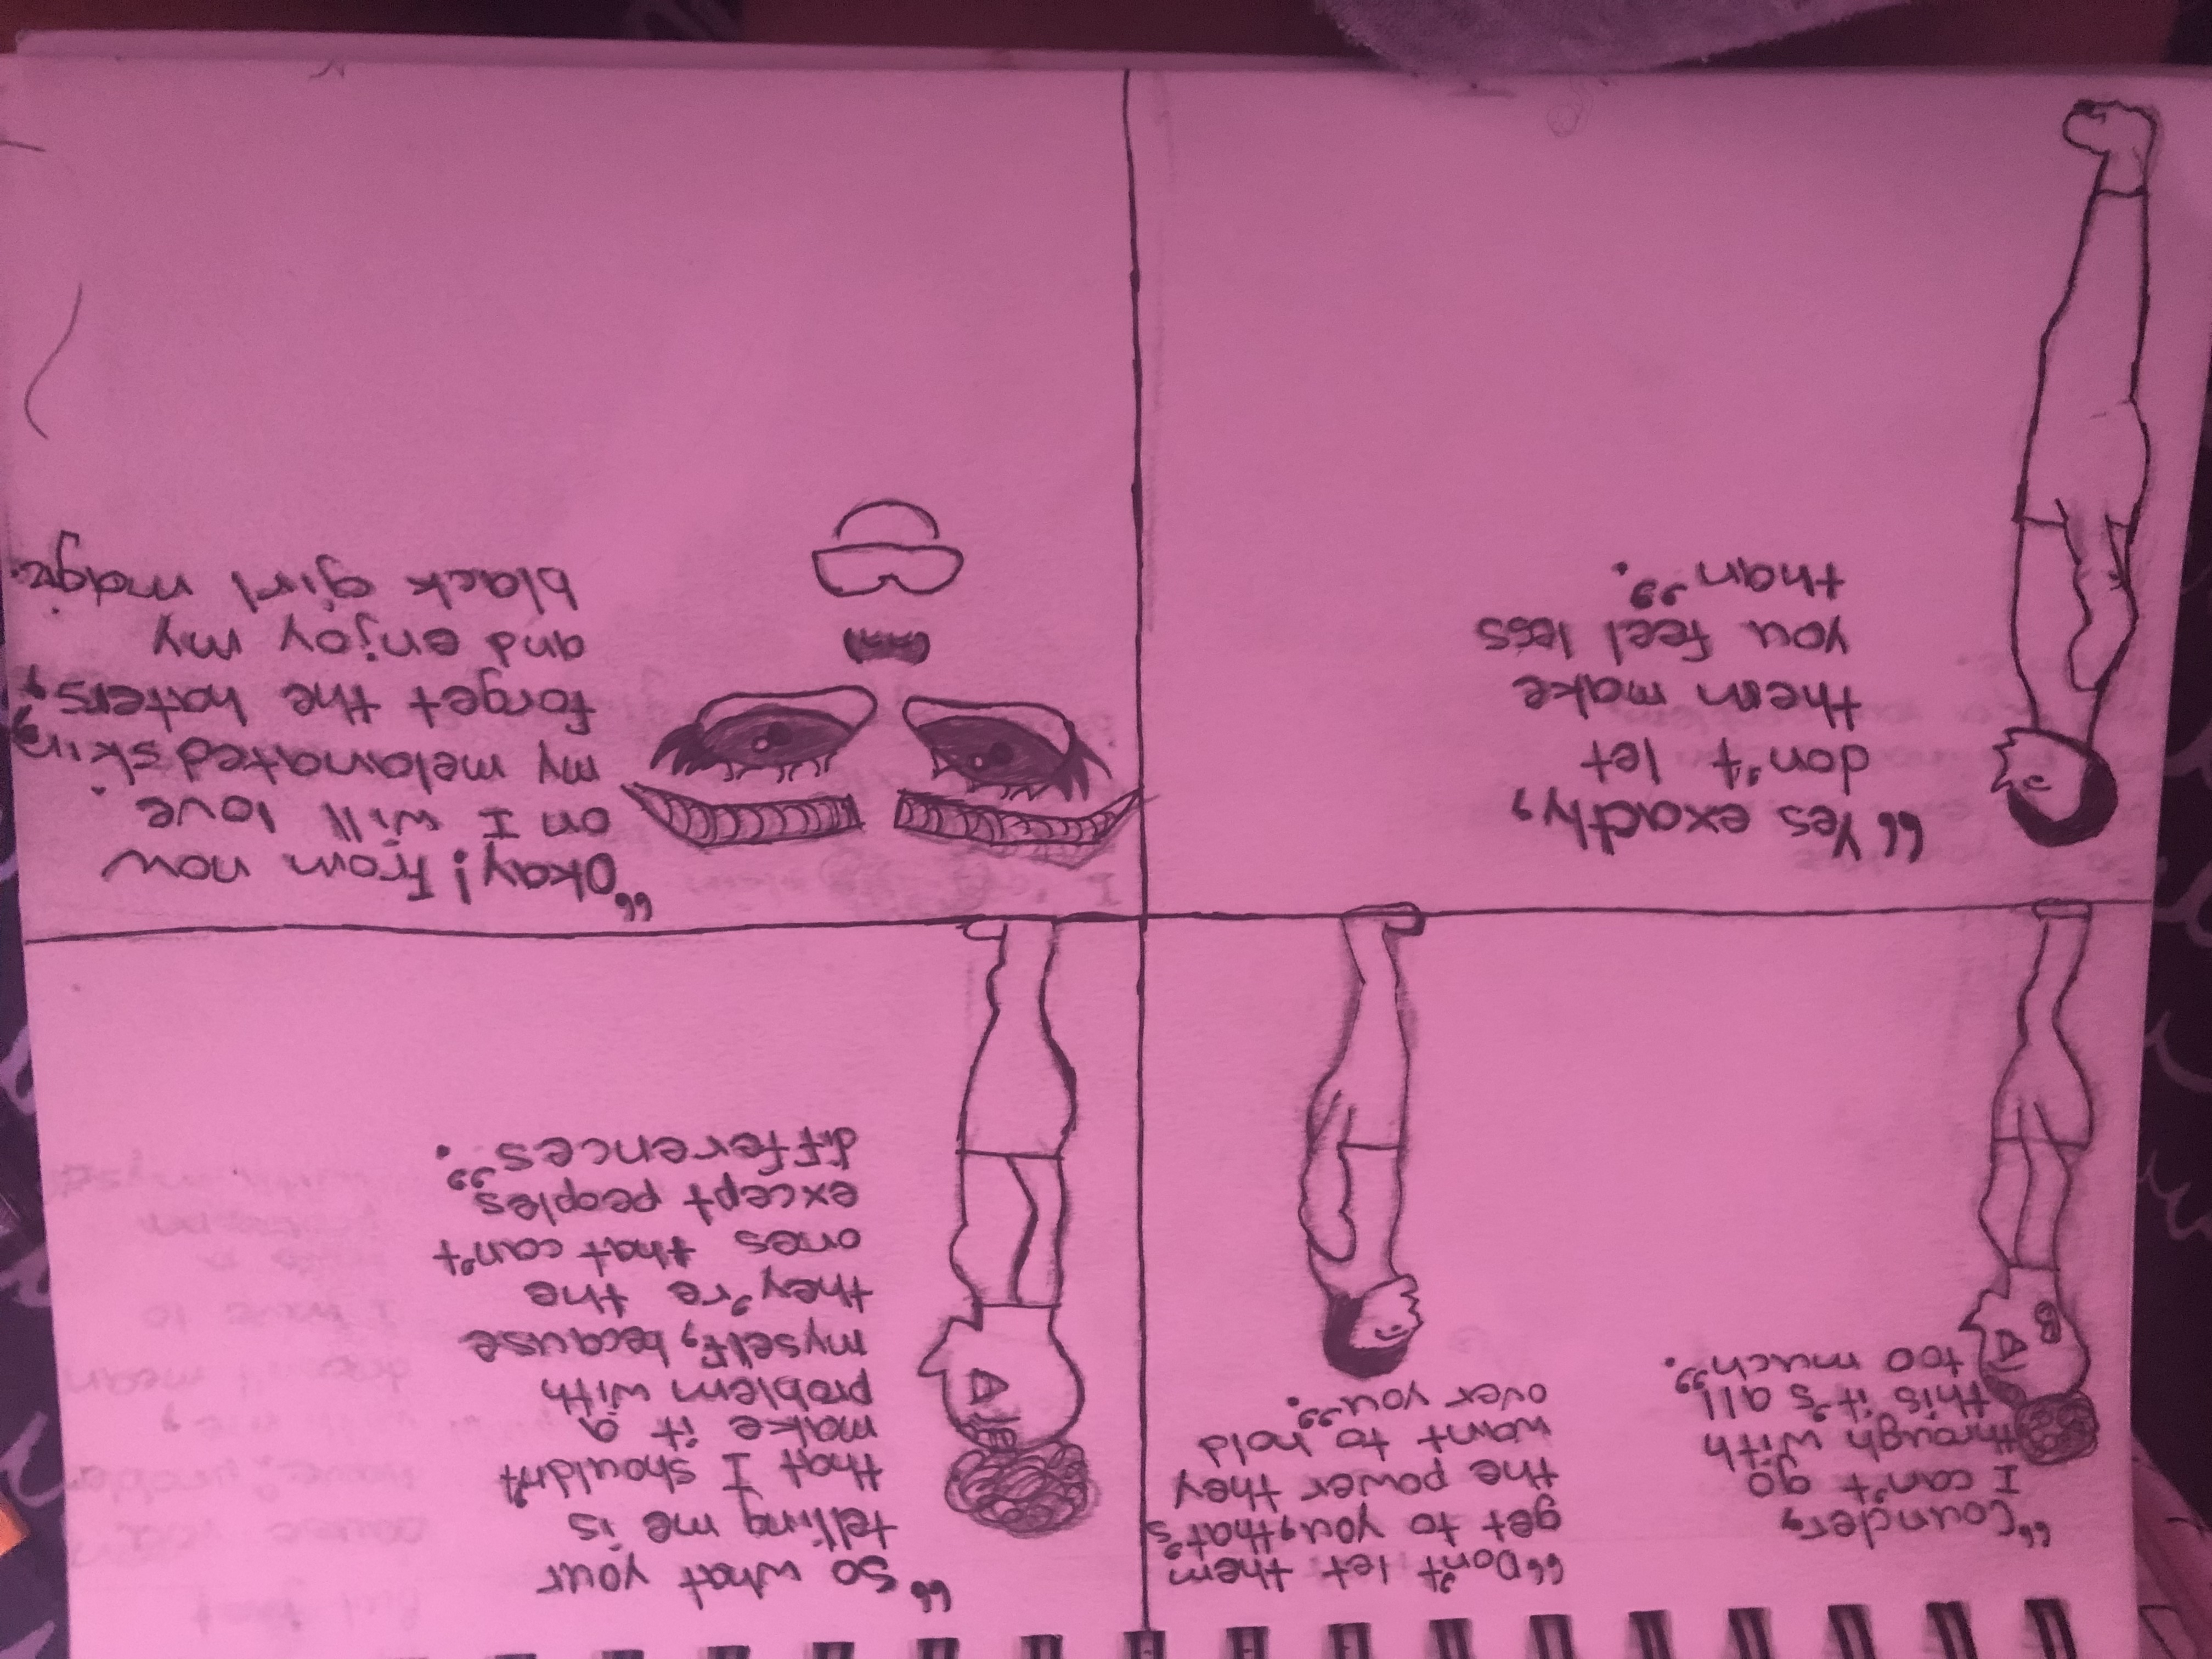 “Counder,
I can't go
through with
this it's all
too much”.
“Don't let them
get to you, that's
the power they
want to hold
over you”.
“So what your
telling me is
that I shouldn't
make it a
problem with
myself, because
they're the
ones that can't
except peoples
differences”.
“Yes exactly,
don't let
them make
you feel less
than”.
“Okay! From now
on I will love
my melanated skin,
forget the haters,
and enjoy my
black girl magic